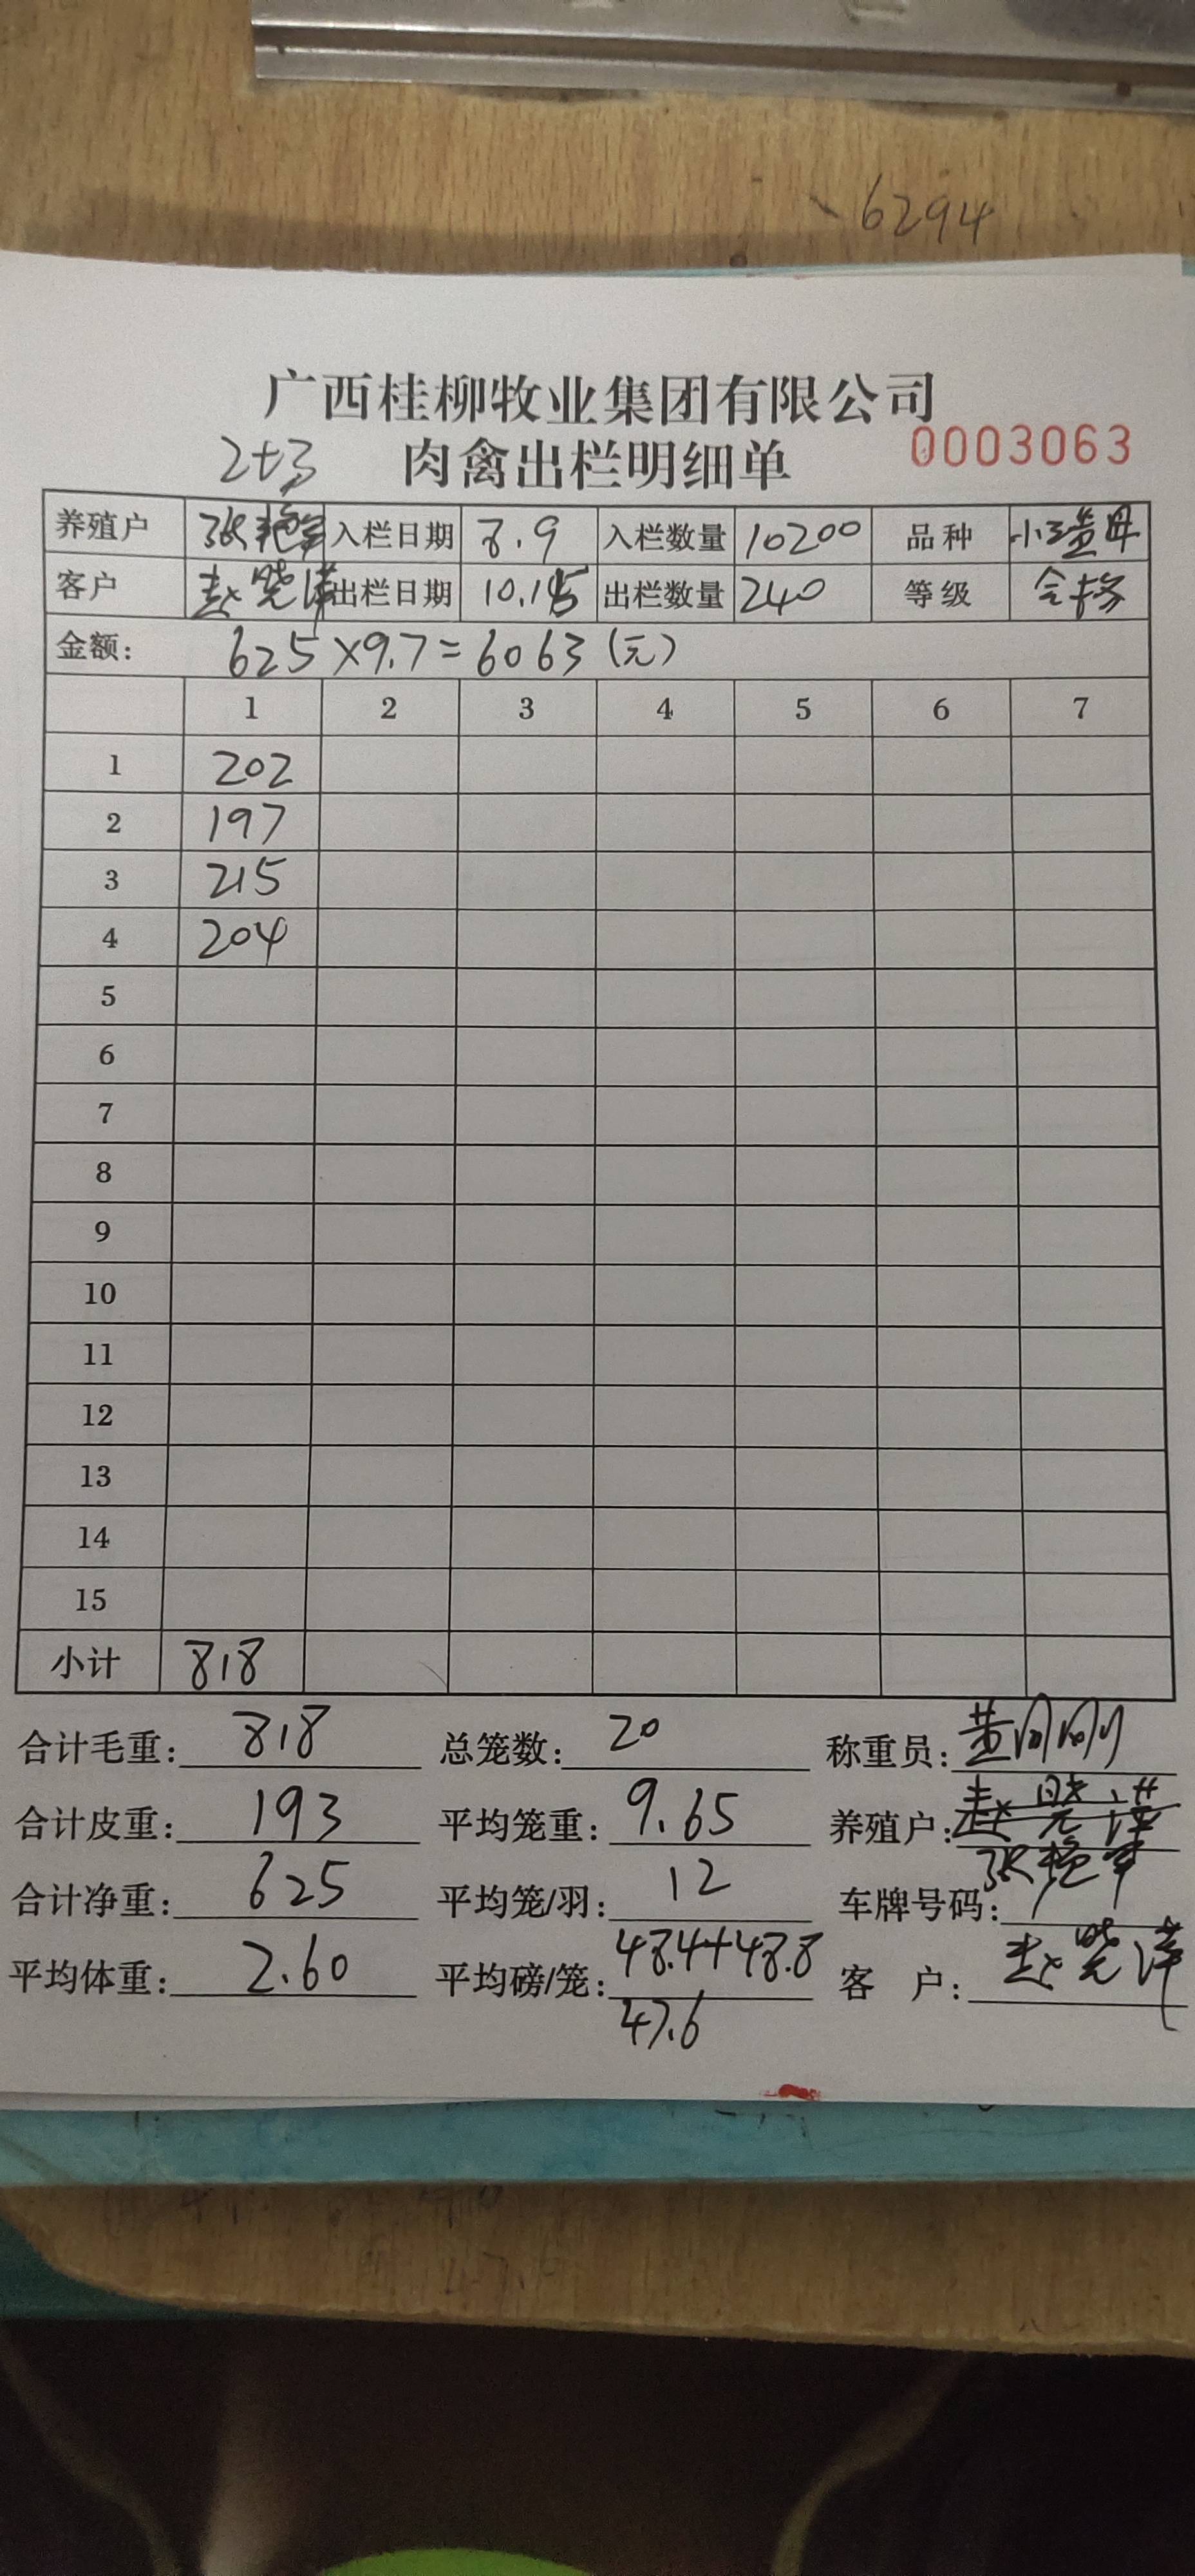 6294
广西桂柳牧业集团有限公司
2+3 肉禽出栏明细单 0003063
养殖户 张艳军 入栏日期 8.9 入栏数量 10200 品种 小三黄母
客户 赵晓洋 出栏日期 10.15 出栏数量 240 等级 合格
金额: 625×9.7=6063(元)
1 2 3 4 5 6 7
1 202
2 197
3 215
4 204
5
6
7
8
9
10
11
12
13
14
15
小计 818
合计毛重: 818 总笼数: 20 称重员: 黄刚
合计皮重: 193 平均笼重: 9.65 养殖户: 赵晓洋
张艳军
合计净重: 625 平均笼/羽: 12 车牌号码:
平均体重: 2.60 平均磅/笼: 48.4+48.8 客 户: 赵晓洋
47.6